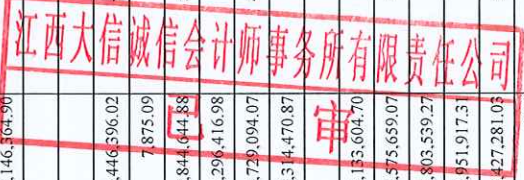 江西大信诚信会计师事务所有限责任公司
已审
,146,364.90
,446,396.02
7,875.09
,844,644.88
,296,416.98
,729,094.07
,314,470.87
,133,604.70
,575,659.07
,803,539.27
,951,917.31
,427,281.03